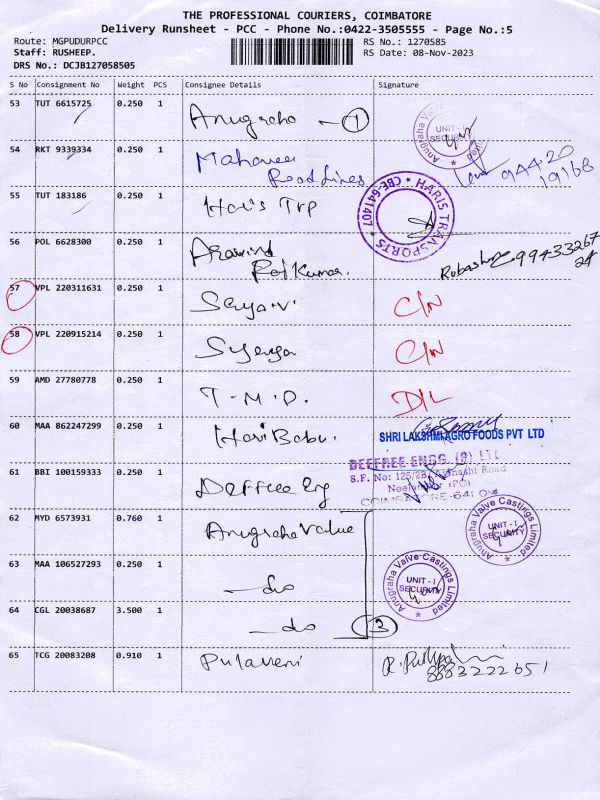 THE PROFESSIONAL COURIERS, COIMBATORE
Delivery Runsheet - PCC - Phone No.:0422-3505555 - Page No.:5
Route: MGPUDURPCC
RS No.: 1270585
Staff: RUSHEEP.
RS Date: 08-Nov-2023
DRS No.: DCJB127058505
S No Consignment No Weight PCS Consignee Details Signature
53 TUT 6615725 0.250 1 Anugraha - 1
Anugraha Valve Castings Limited
UNIT - I
SECURITY
54 RKT 9339334 0.250 1 Mahaveer
Road Lines
94420
19168
55 TUT 183186 0.250 1 Hari's Trp
HARIS TRANSPORTS * CBE-641407 *
56 POL 6628300 0.250 1 Aravind
Raj Kumar.
57 VPL 220311631 0.250 1 C/N
58 VPL 220915214 0.250 1 C/N
59 AMD 27780778 0.250 1 T.M.D. D/L
60 MAA 862247299 0.250 1 Hari Babu.
SHRI LAKSHMI AGRO FOODS PVT LTD
61 BBI 100159333 0.250 1 Deffree Eng
DEFFREE ENGG. (P) LTD
S.F. No: 125/2B, Avinashi Road
(PO)
COIMBATORE-641 014
62 MYD 6573931 0.760 1 Anugraha Value
Anugraha Valve Castings Limited
UNIT - I
SECURITY
63 MAA 106527293 0.250 1 -do
Anugraha Valve Castings Limited
UNIT - I
SECURITY
64 CGL 20038687 3.500 1 -do 3
65 TCG 20083208 0.910 1
8883222651